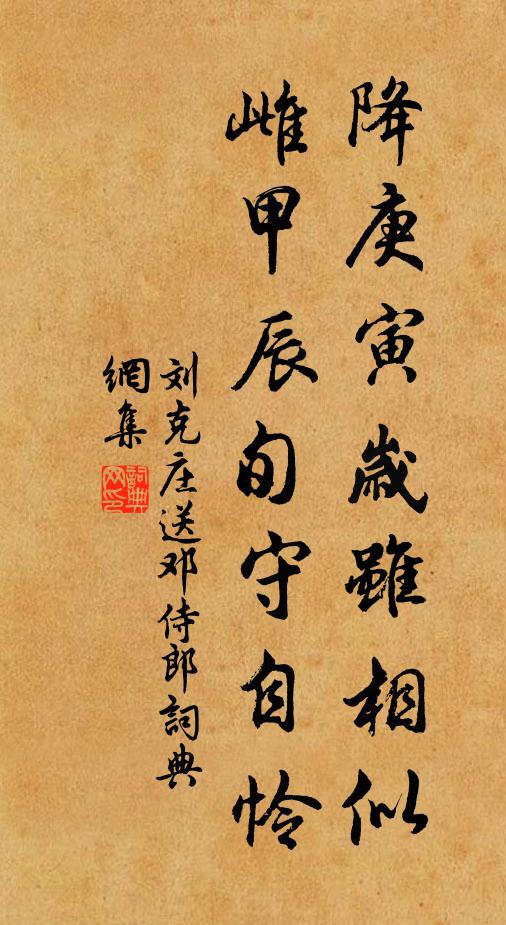 降庚寅嵗雖相似
雌甲辰旬守自怜
刘克庄送邓侍郎詞典
網集
詞典
网印